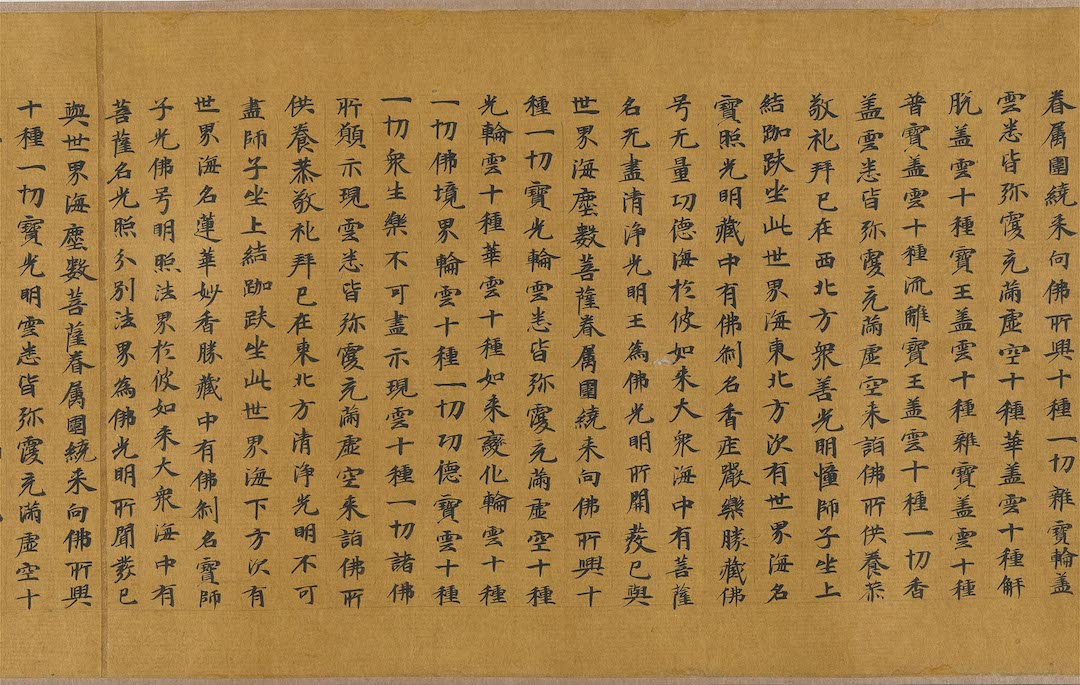 眷属圍繞来向佛所興十種一切雜寶輪盖
雲悉皆弥覆充滿虛空十種華盖雲十種解
脱盖雲十種寶王盖雲十種雜寶盖雲十種
普寶盖雲十種流離寶王盖雲十種一切香
盖雲悉皆弥覆充滿虛空来詣佛所供養恭
敬礼拜已在西北方衆善光明幢師子坐上
結跏趺坐此世界海東北方次有世界海名
寶照光明藏中有佛剎名香庄嚴樂勝藏佛
号无量功德海扵彼如来大衆海中有菩薩
名无盡清淨光明王為佛光明所開發已與
世界海塵數菩薩眷属圍繞来向佛所興十
種一切寶光輪雲悉皆弥覆充滿虛空十種
光輪雲十種華雲十種如来變化輪雲十種
一切佛境界輪雲十種一切功德寶雲十種
一切衆生樂不可盡示現雲十種一切諸佛
所願示現雲悉皆弥覆充滿虛空来詣佛所
供養恭敬礼拜已在東北方清淨光明不可
盡師子坐上結跏趺坐此世界海下方次有
世界海名蓮華妙香勝藏中有佛剎名寶師
子光佛号明照法界扵彼如来大衆海中有
菩薩名光照分別法界為佛光明所開發已
與世界海塵數菩薩眷属圍繞来向佛所興
十種一切寶光明雲悉皆弥覆充滿虛空十